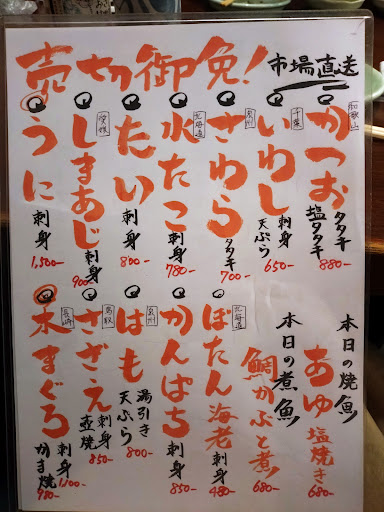 売切御免!
市場直送
和歌山
かつお
タタキ
塩タタキ
880-
千葉
いわし
刺身
天ぷら
650-
泉州
さわら
タタキ
700-
北海道
水たこ
刺身
780-
たい
刺身
800-
愛媛
しまあじ
刺身
900-
うに
刺身
1,500-
本日の焼魚
あゆ
塩焼き
680-
本日の煮魚
鯛かぶと煮
680-
北海道
ぼたん海老
刺身
480-
かんぱち
刺身
850-
泉州
はも
湯引き
天ぷら
800-
鳥取
さざえ
刺身
壺焼
850-
長崎
本まぐろ
刺身
1,100-
かま焼
980-